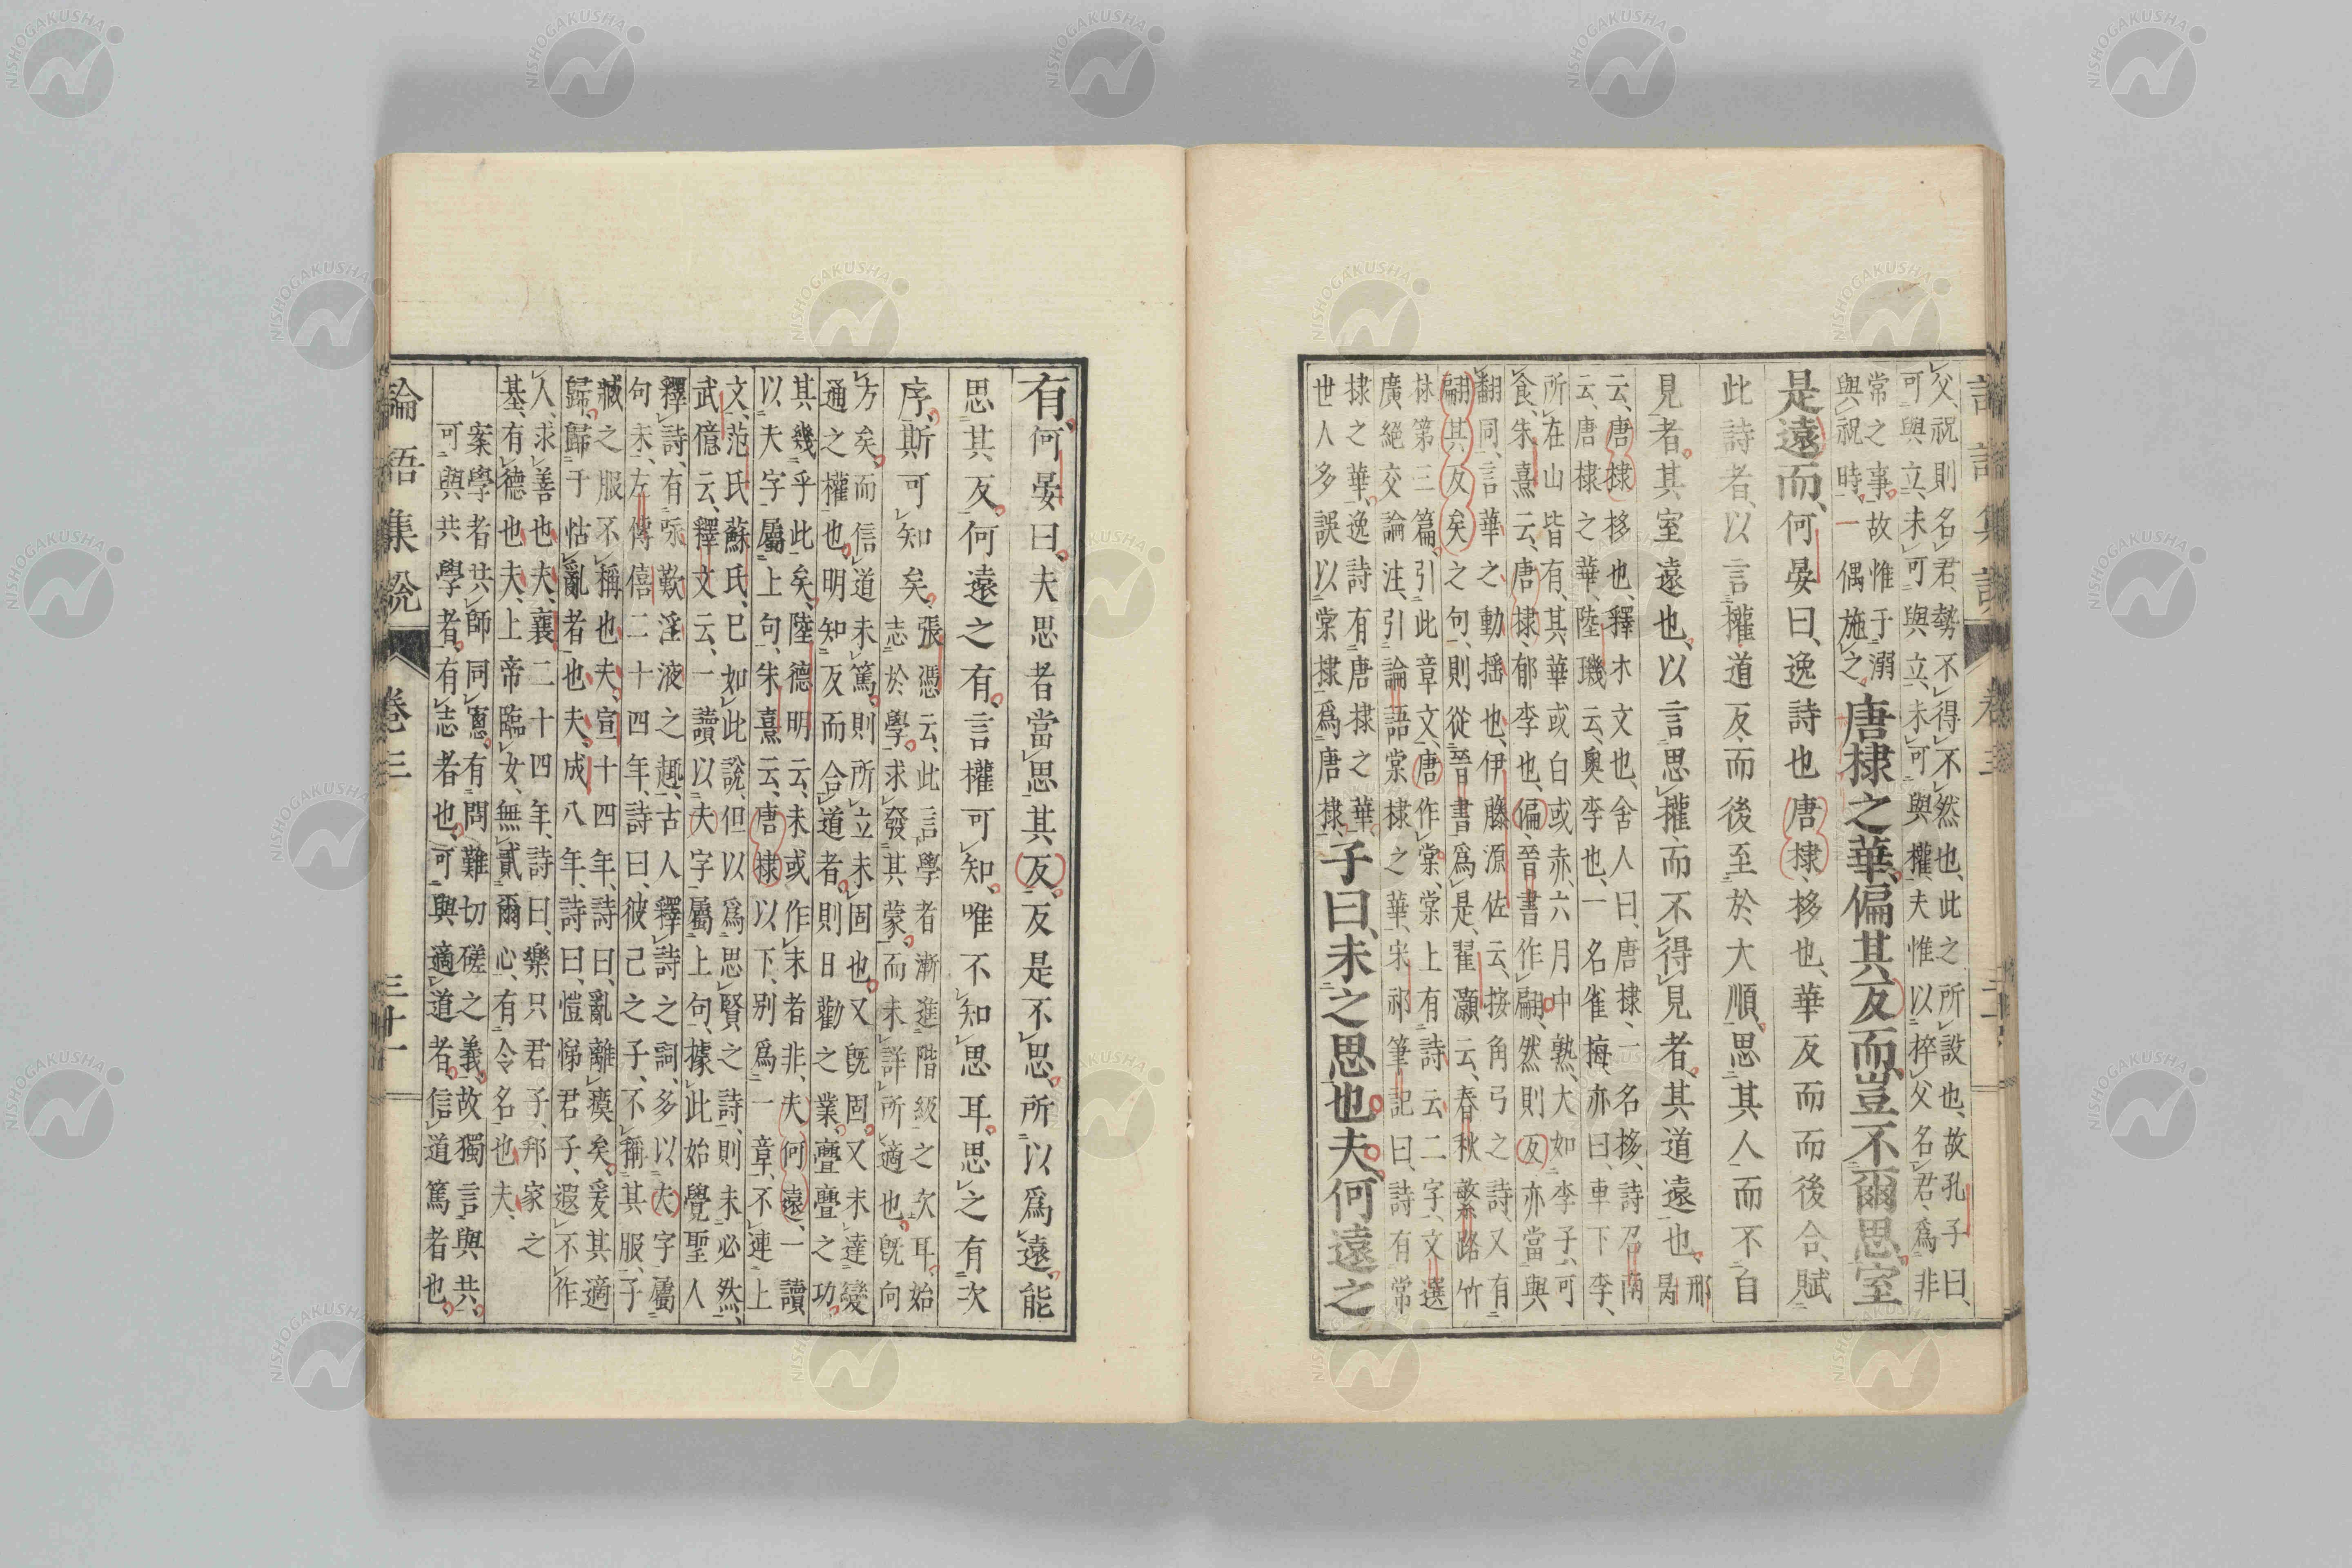 父、祝則名君、勢不得不然也、此之所設也、故孔子曰、
可與立、未可與立、未可與權、夫惟以梓父名君、爲非
常之事。故惟于溺
與祝時、一偶施之。
唐棣之華、偏其反而、豈不爾思、室
是遠而、何晏曰、逸詩也、唐棣、栘也、華反而後合、賦
此詩者、以言權道反而後至於大順、思其人而不自
見者。其室遠也、以言思權而不得見者、其道遠也。邢昺
云、唐棣栘也、釋木文也、舍人曰、唐棣、一名栘、詩召南
云、唐棣之華、陸璣云、奧李也、一名雀梅、亦曰、車下李、
所在山皆有、其華或白或赤、六月中熟、大如李子、可
食、朱熹云、唐棣、郁李也、偏、晉書作翩、然則反亦當與
翻同、言華之動搖也、伊藤源佐云、按角弓之詩、又有
翩其反矣之句、則從晉書爲是、翟灝云、春秋繁路竹
林第三篇、引此章文、唐作棠、棠上有詩云二字、文選
廣絕交論注、引論語棠棣之華、宋祁筆記曰、詩有常
棣之華、逸詩有唐棣之華。
世人多誤以棠棣爲唐棣、
子曰、未之思也、夫何遠之
有、何晏曰、夫思者當思其反、反是不思、所以爲遠、能
思其反、何遠之有、言權可知、唯不知思耳、思之有次
序、斯可知矣、
張憑云、此言學者漸進階級之次耳、始
志於學、求發其蒙、而未詳所適也、既向
方矣、而信道未篤、則所立未固也、又既固、又未達變
通之權也、明知反而合道者、則日勸之業、亹亹之功、
其幾乎此矣、陸德明云、未或作末者非、夫何遠、一讀
以夫字屬上句、朱熹云、唐棣以下、別爲一章、不連上
文、范氏蘇氏、已如此說、但以爲思賢之詩、則未必然、
武億云、釋文云、一讀以夫字屬上句、據此始覺聖人
釋詩、有咏歎淫液之趣、古人釋詩之詞、多以夫字屬
句末、左傳僖二十四年、詩曰、彼己之子、不稱其服、子
臧之服不稱也夫、宣十四年、詩曰、亂離瘼矣、爰其適
歸、歸于怙亂者也夫、成八年、詩曰、愷悌君子、遐不作
人、求善也夫、襄二十四年、詩曰、樂只君子、邦家之
基、有德也夫、上帝臨女、無貳爾心、有令名也夫、
案學者共師同憲、有問難切磋之義、故獨言與共、
可與共學者、有志者也、可與適道者、信道篤者也、
論語集說
卷三
三十一
NISHOGAKUSHA